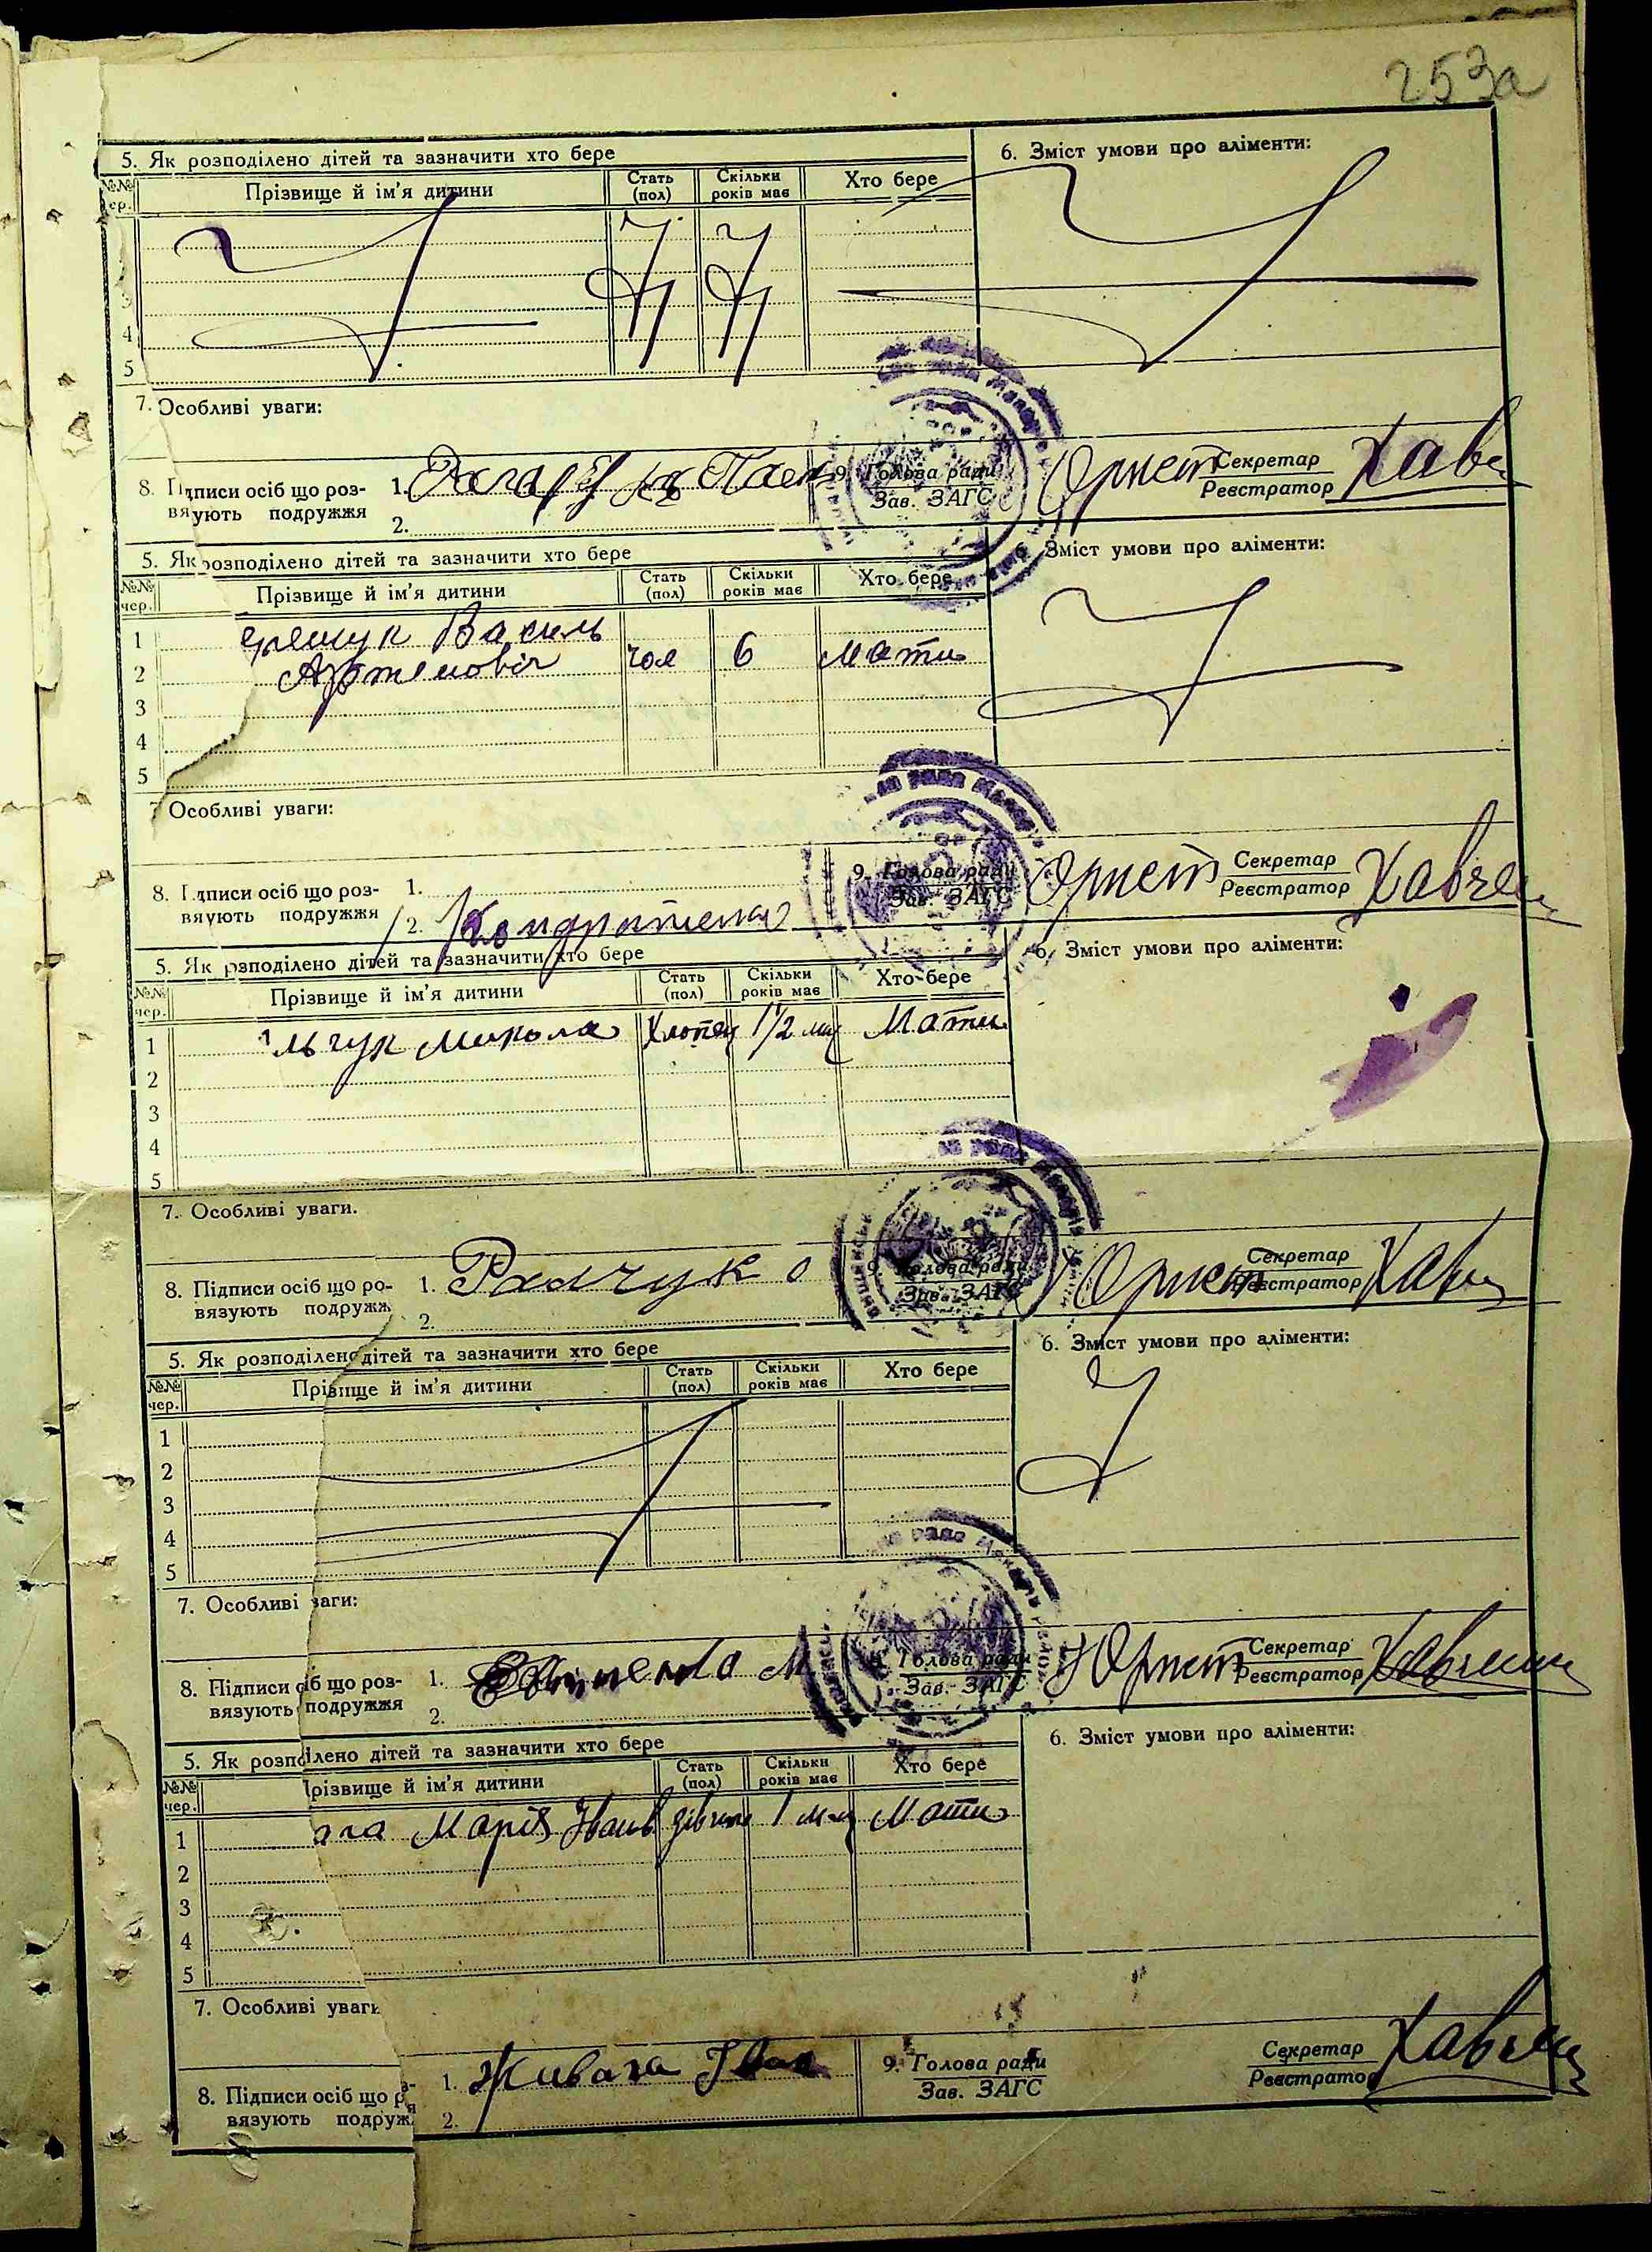 253а
5. Як розподілено дітей та зазначити хто бере
6. Зміст умови про аліменти:
№№ Прізвище й ім'я дитини Стать (пол) Скільки років має Хто бере
3
4
5
7. Особливі уваги:
8. Підписи осіб що роз-
вяують подружжя
1.
2.
9. Голова ради
Зав. ЗАГС
Секретар
Реєстратор
5. Як розподілено дітей та зазначити хто бере
6. Зміст умови про аліменти:
№№ чер. Прізвище й ім'я дитини Стать (пол) Скільки років має Хто бере
1 Василь
2 Артемовіч чол 6 Мати
3
4
5
7 Особливі уваги:
8. Підписи осіб що роз-
вяують подружжя
1.
2. Кондратенко
9. Голова ради
Зав. ЗАГС
Секретар
Реєстратор
Хавчен
5. Як розподілено дітей та зазначити хто бере
6. Зміст умови про аліменти:
№№ чер. Прізвище й ім'я дитини Стать (пол) Скільки років має Хто бере
1 льчук Микола Хлопец 1 1/2 мц Мати
2
3
4
5
7. Особливі уваги.
8. Підписи осіб що ро-
вязують подружж
1.
2.
9. Голова ради
Зав. ЗАГС
Секретар
Реєстратор
5. Як розподілено дітей та зазначити хто бере
6. Зміст умови про аліменти:
№№ чер. Прізвище й ім'я дитини Стать (пол) Скільки років має Хто бере
1
2
3
4
5
7. Особливі ваги:
8. Підписи осіб що роз-
вязують подружжя
1.
2.
9. Голова ради
Зав. ЗАГС
Секретар
Реєстратор
5. Як розподілено дітей та зазначити хто бере
6. Зміст умови про аліменти:
№№ чер. Прізвище й ім'я дитини Стать (пол) Скільки років має Хто бере
1 ага Марія Іванів дівчин 1 м-ц Мати
2
3
4
5
7. Особливі уваги
8. Підписи осіб що р
вязують подруж.
1. Живага Іван
2.
9. Голова ради
Зав. ЗАГС
Секретар
Реєстратор